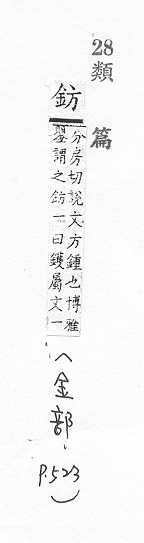 28
類篇
鈁
分房切說文方鍾也博雅
謂之鈁一曰鑊屬文一
(金部,
P.523)